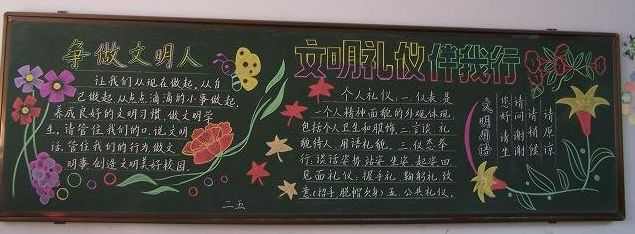 争做文明人
让我们从现在做起,从自
己做起,从点点滴滴的小事做起,
养成良好的文明习惯,做文明学
生,请管住我们的口,说文明
话,管住我们的行为,做文
明事,创造文明美好校园.
二五
文明礼仪伴我行
个人礼仪:一.仪表是
一个人精神面貌的外观体现,
包括个人卫生和服饰.二.言谈.礼
貌待人.用语礼貌.三.仪态举
行:谈话姿势.站姿.坐姿.起姿.四
见面礼仪:握手礼.鞠躬礼.致
意(招手.脱帽.欠身)五.公共礼仪.
文明用语
您好 请坐
请问 谢谢
请稍候
请原谅